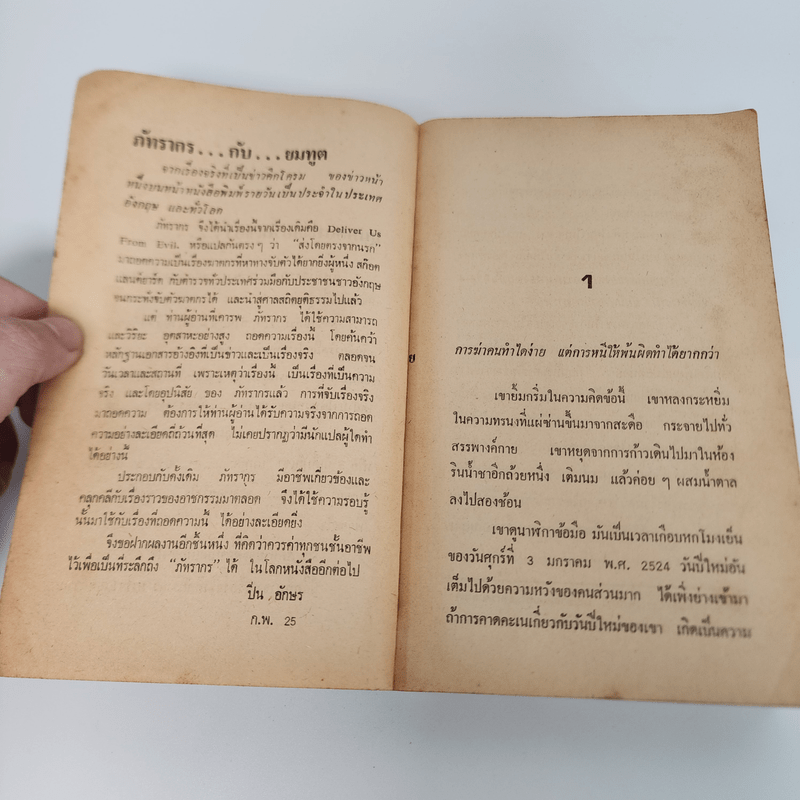 ภัทรากร...กับ...ยมทูต
จากเรื่องจริงที่เป็นข่าวคึกโครม ของข่าวหน้า
หนึ่งบนหน้าหนังสือพิมพ์รายวันเป็นประจำในประเทศ
อังกฤษ และทั่วโลก
ภัทรากร จึงได้นำเรื่องนี้จากเรื่องเดิมคือ Deliver Us
From Evil. หรือแปลกันตรงๆ ว่า "ส่งโดยตรงจากนรก"
มาถอดความเป็นเรื่องฆาตกรที่หาทางจับตัวได้ยากยิ่งผู้หนึ่ง สก๊อต
แลนด์ยาร์ด กับตำรวจทั่วประเทศร่วมมือกับประชาชนชาวอังกฤษ
จนกระทั่งจับตัวฆาตกรได้ และนำสู่ศาลสถิตยุติธรรมไปแล้ว
แต่ ท่านผู้อ่านที่เคารพ ภัทรากร ได้ใช้ความสามารถ
และวิริยะ อุตสาหะอย่างสูง ถอดความเรื่องนี้ โดยค้นคว้า
หลักฐานเอกสารอ้างอิงที่เป็นข่าวและเป็นเรื่องจริง ตลอดจน
วันเวลาและสถานที่ เพราะเหตุว่าเรื่องนี้ เป็นเรื่องที่เป็นความ
จริง และโดยอุปนิสัย ของ ภัทรากรแล้ว การที่จับเรื่องจริง
มาถอดความ ต้องการให้ท่านผู้อ่านได้รับความจริงจากการถอด
ความอย่างละเอียดถี่ถ้วนที่สุด ไม่เคยปรากฏว่ามีนักแปลผู้ใดทำ
ได้อย่างนี้
ประกอบกับดั้งเดิม ภัทรากร มีอาชีพเกี่ยวข้องและ
คลุกคลีกับเรื่องราวของอาชกรรมมาตลอด จึงได้ใช้ความรอบรู้
นั้นมาใช้กับเรื่องที่ถอดความนี้ ได้อย่างละเอียดยิ่ง
จึงขอฝากผลงานอีกชิ้นหนึ่ง ที่คิดว่าควรค่าทุกชนชั้นอาชีพ
ไว้เพื่อเป็นที่ระลึกถึง "ภัทรากร" ได้ ในโลกหนังสืออีกต่อไป
ปิ่น อักษร
ก.พ. 25
ย
1
การฆ่าคนทำได้ง่าย แต่การหนีให้พ้นผิดทำได้ยากกว่า
เขายิ้มกริ่มในความคิดข้อนี้ เขาหลงกระหยิ่ม
ในความทรนงที่แผ่ซ่านขึ้นมาจากสะดือ กระจายไปทั่ว
สรรพางค์กาย เขาหยุดจากการก้าวเดินไปมาในห้อง
รินน้ำชาอีกถ้วยหนึ่ง เติมนม แล้วค่อย ๆ ผสมน้ำตาล
ลงไปสองช้อน
เขาดูนาฬิกาข้อมือ มันเป็นเวลาเกือบหกโมงเย็น
ของวันศุกร์ที่ 3 มกราคม พ.ศ. 2524 วันปีใหม่อัน
เต็มไปด้วยความหวังของคนส่วนมาก ได้เพิ่งย่างเข้ามา
ถ้าการคาดคะเนเกี่ยวกับวันปีใหม่ของเขา เกิดเป็นความ